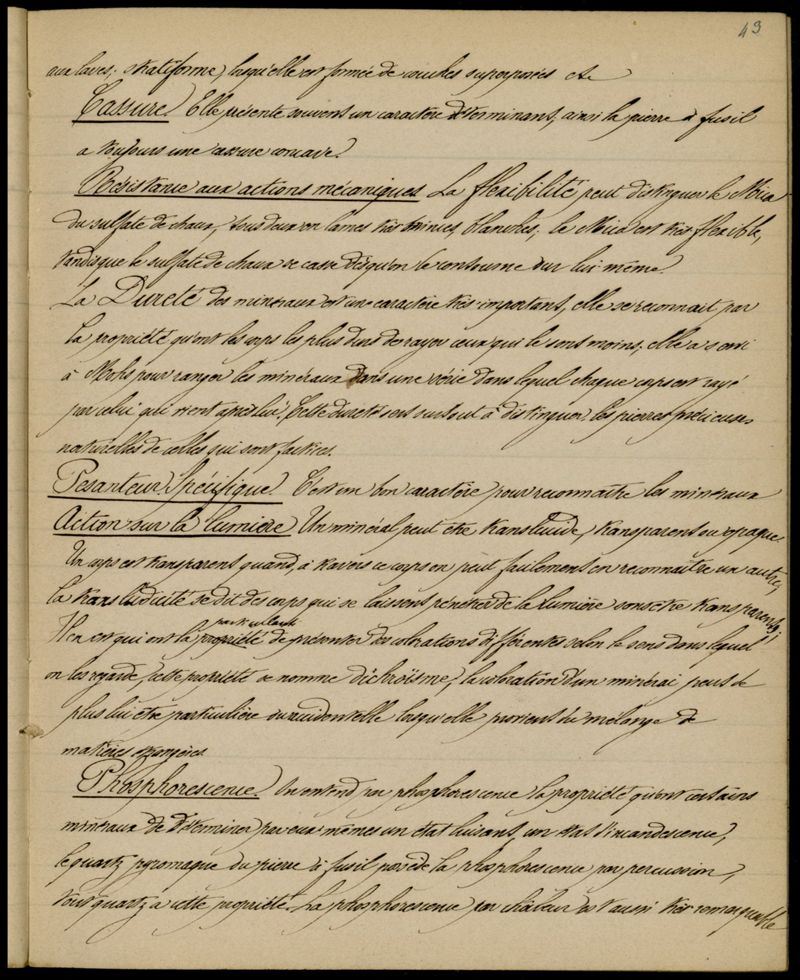 43
aux laves, stratiforme, lorsqu'elle est formée de couches superposées etc
Cassure. Elle présente souvent un caractère déterminant, ainsi la pierre à fusil
a toujours une cassure concave.
Résistance aux actions mécaniques La flexibilité peut distinguer le Mica
du sulfate de chaux, tous deux en lames très minces, blanches, le Mica est très flexible,
tandis que le sulfate de chaux se casse dès qu'on le contourne sur lui-même.
La Dureté des minéraux est une caractère très important, elle se reconnait par
la propriété qu'ont les corps les plus durs de rayer ceux qui le sont moins, elle a servi
à Mohs pour ranger les minéraux dans une série dans lequel chaque corps est rayé
par celui qui vient après lui. Cette dureté sert surtout à distinguer les pierres précieuses
naturelles de celles qui sont factices.
Pesanteur Spécifique. C'est un bon caractère pour reconnaître les minéraux
Action sur la lumière Un minéral peut être translucide, transparent ou opaque
Un corps est transparent quand, à travers ce corps on peut facilement en reconnaître un autre,
la translucidité se dit des corps qui se laissent pénétrer de la lumière sans être transparents;
Il en est qui ont la propriété particulière de présenter des colorations différentes selon le sens dans lequel
on les regarde, cette propriété se nomme dichroïsme, la coloration d'un minérai peut de
plus lui être particulière ou accidentelle lorsqu'elle provient du mélange de
matières étrangères.
Phosphorescence. On entend par phosphorescence la propriété qu'ont certains
minéraux de déterminer par eux-mêmes un état luisant, un état d'incandescence,
le quartz pyromaque ou pierre à fusil possède la phosphorescence par percussion,
tout quartz a cette propriété. La phosphorescence par chaleur est aussi très remarquable